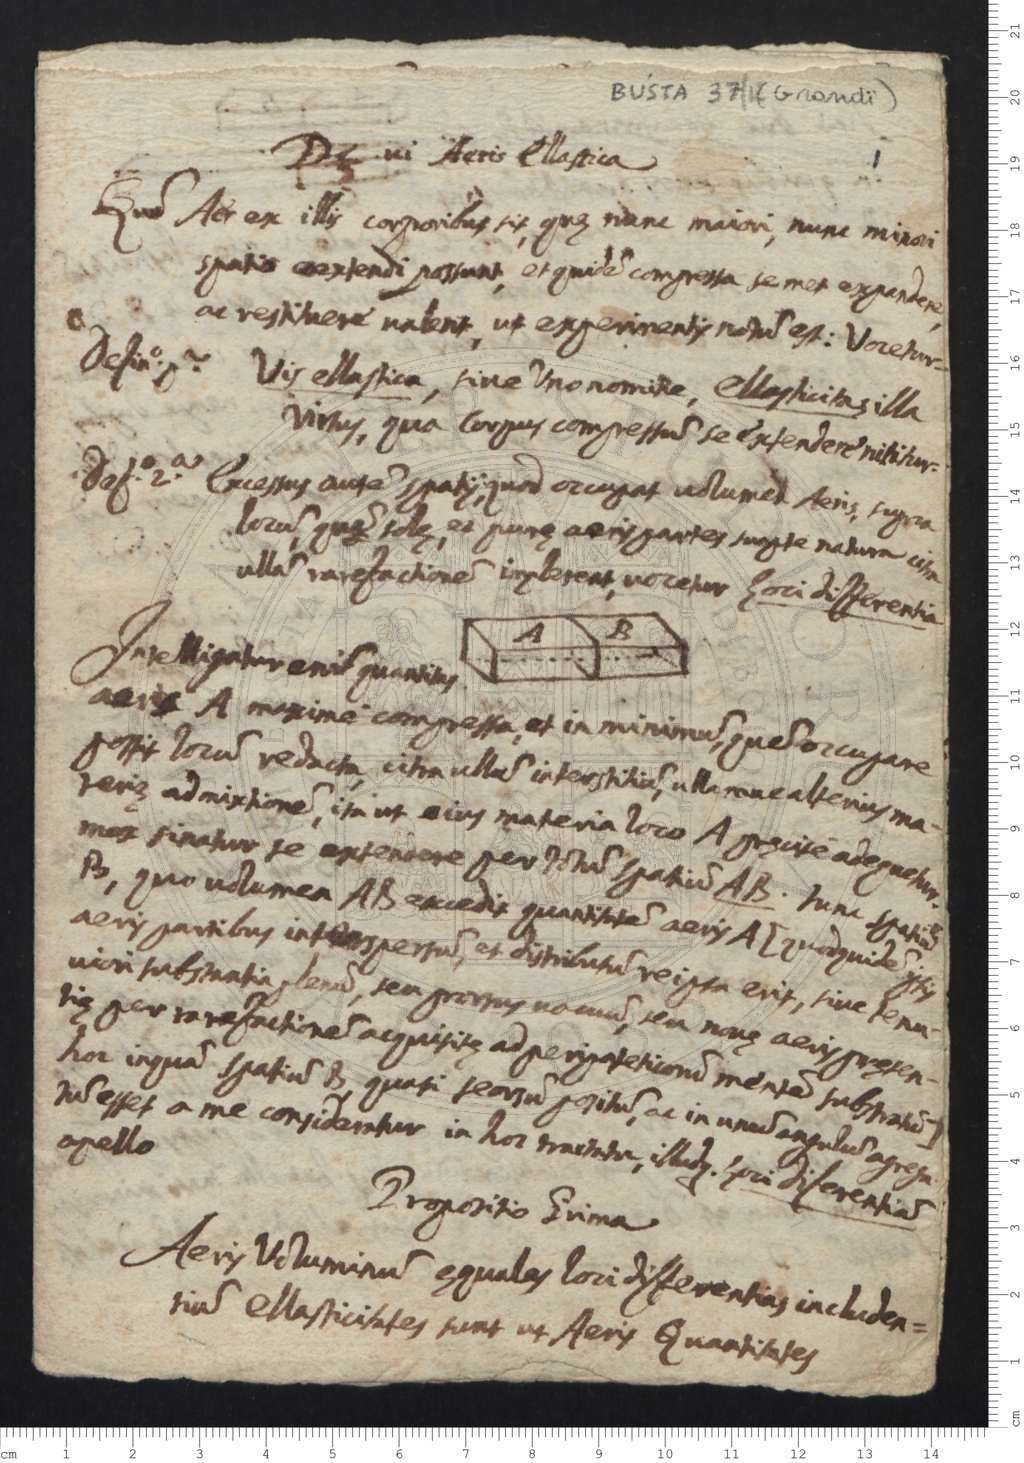 BUSTA 37/1 (Grandi)
1
De vi Aeris Ellastica
Quod Aer ex illis corporibus sit, quę nunc maiori, nunc minori
spatio coextendi possunt, et quidē compressa semet expandere,
ac restituere valent, ut experimentis notū est: Vocetur
Defin.o p.a Vis ellastica, sive Uno nomine, ellasticitas illa
Virtus, qua Corpus compressū se extendere nititur.
Def.o 2.a Excessus autē spatij, quod occupat volumen Aeris, supra
locū, quē solę, et purę aeris partes suapte natura citra
ullā rarefactionē implerent, vocetur Loci differentia
A B
Intelligatur enim quantitas
aeris A maxime compressa, et in minimū, quē occupare
possit locū redacta, citra ullū interstitiū, ullamue alterius ma-
terię admixtionē, ita ut eius materia loco A pręcisè adęquetur.
mox sinatur se extendere per totū spatiū AB. tunc spatiū
B, quo volumen AB excedit quantitatē aeris A [quodquidē ipsis
aeris partibus interspersū, et distributū reipsa erit, sive tenu-
iori substantia plenū, seu prorsus vacuū, seu novę aeris pręsen-
tię per rarefactionē acquisitę ad peripateticorū mentē substratū]
hoc inquā spatiū B, quasi seorsū positū, ac in unū angulū agrega
tū esset a me consideratur in hoc tractatu, illudq. Loci diferentiā
apello
Propositio Prima
Aeris Voluminū ęquales loci differentias includen=
tiū ellasticitates sunt ut Aeris Quantitates